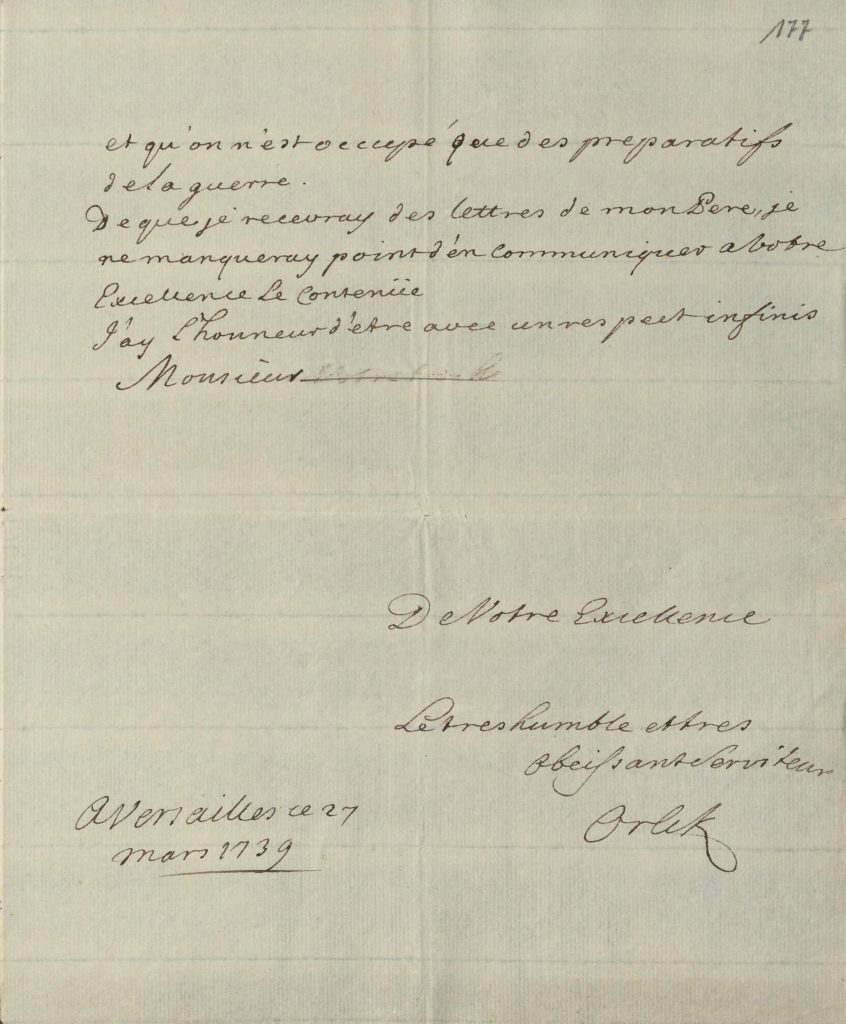 177
et qu'on n'est occupé que des preparatifs
de la guerre.
De que je recevray des lettres de mon Pere, je
ne manqueray point d'en communiquer a Votre
Excellence Le Contenüe
J'ay l'honneur d'etre avec un respect infinis
Monsieur
De Votre Excellence
Le tres humble et tres
obeissant Serviteur
Orlik
A Versailles ce 27
mars 1739